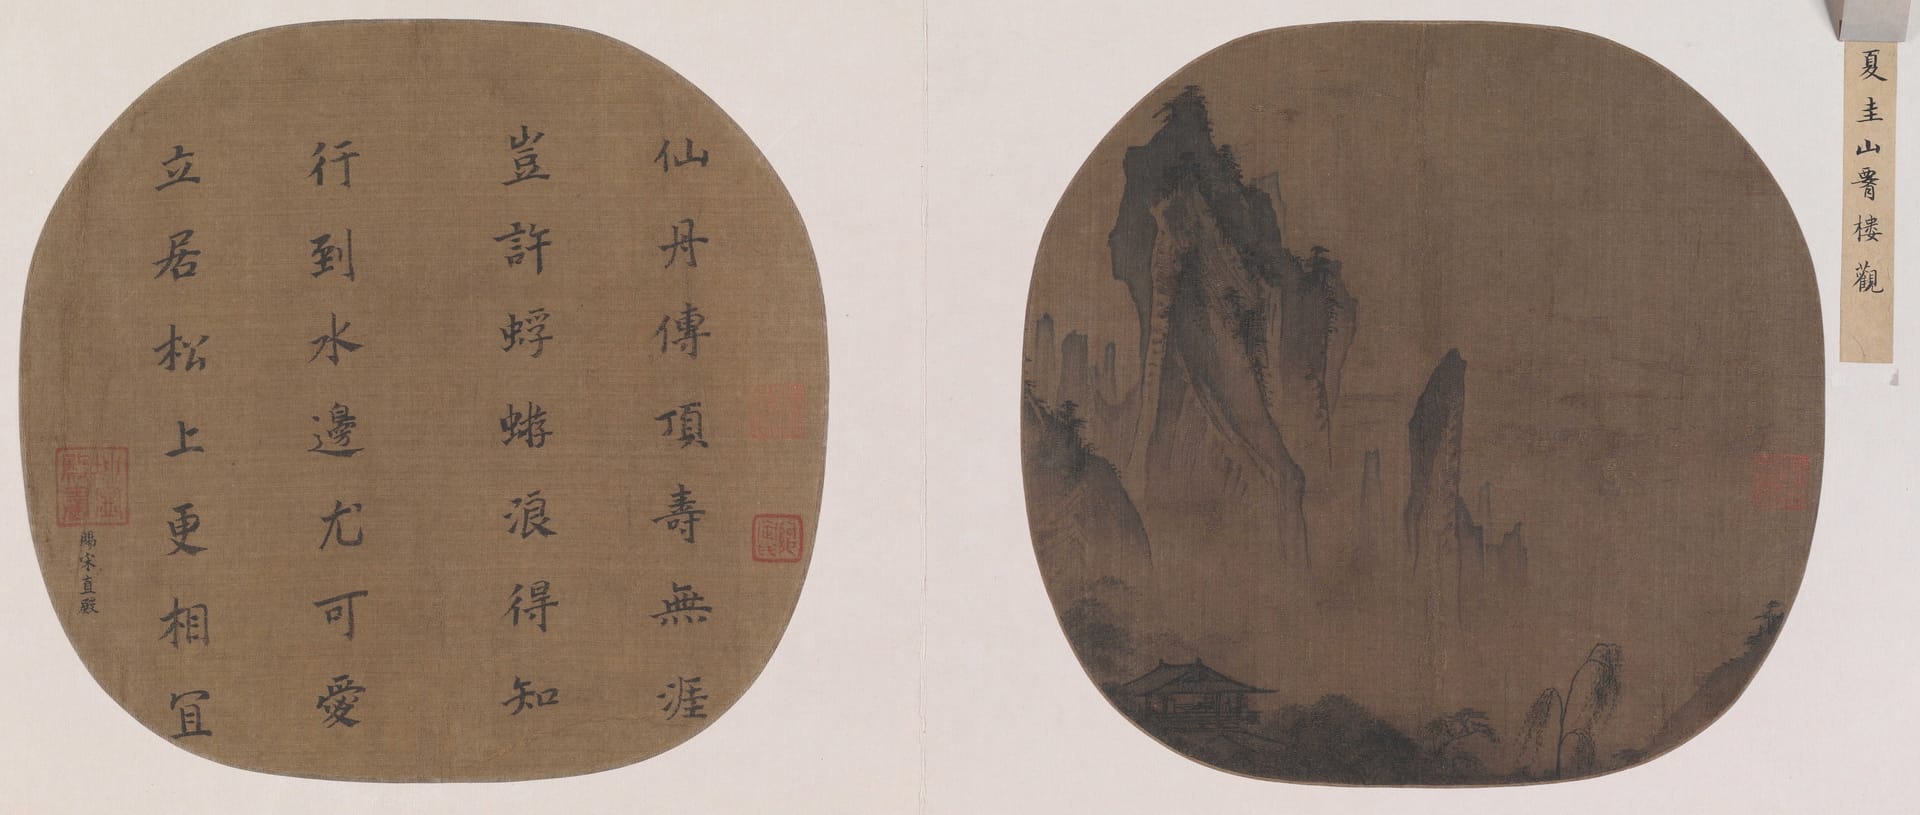 夏圭山䏿楼觀
仙丹傳頂壽無涯
豈許蜉蝣浪得知
行到水邊尤可愛
立居松上更相宜
賜宋直殿